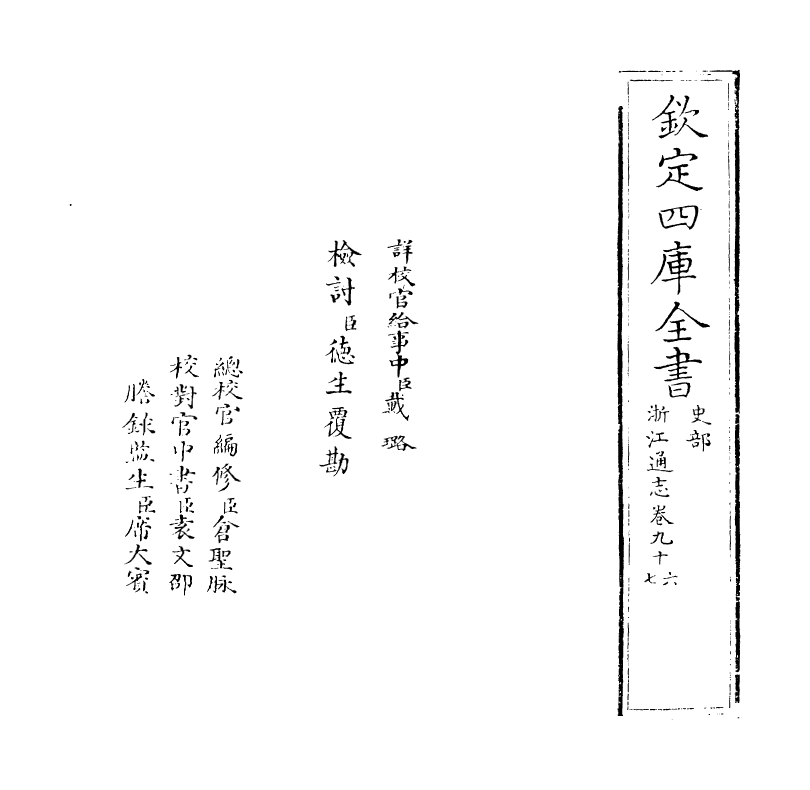 欽定四庫全書
史部
浙江通志卷九十六
七
詳校官給事中臣戴璐
檢討臣德生覆勘
總校官編修臣倉聖脉
校對官中書臣袁文邵
謄錄監生臣席大賓